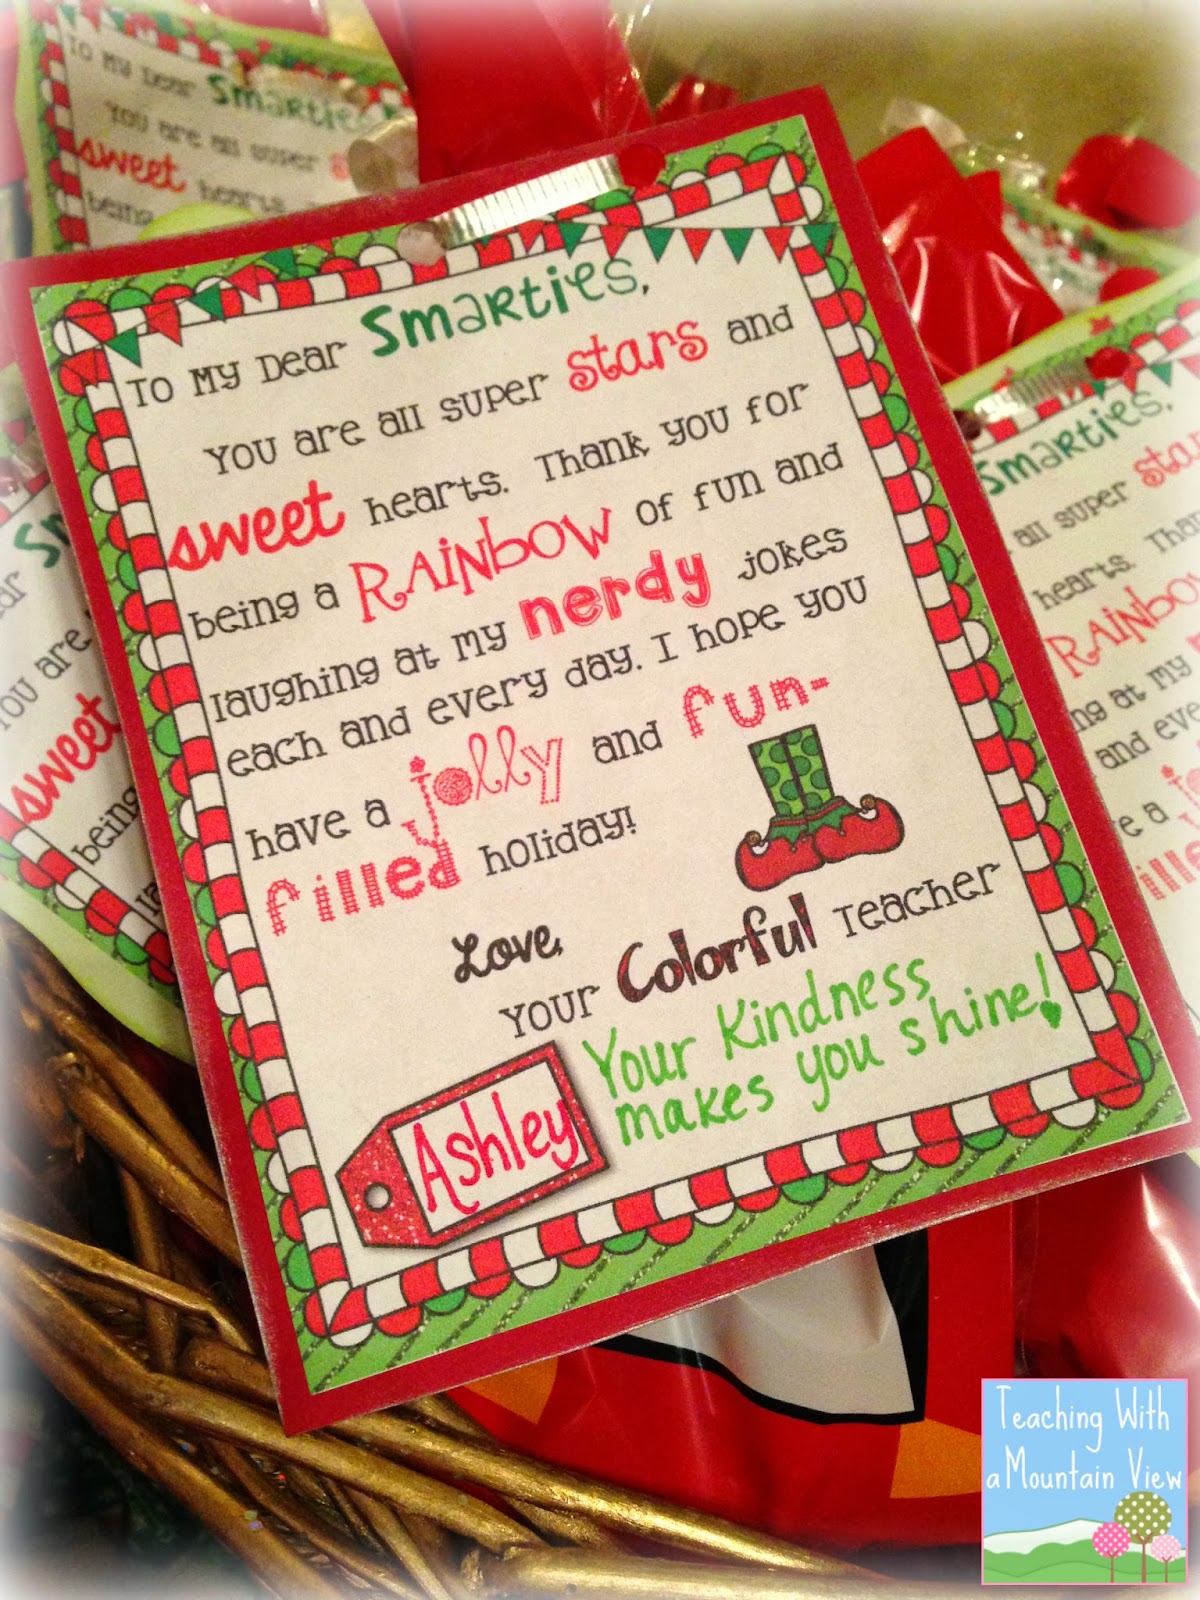 To My Dear Smarties,
You are all super stars and
sweet hearts. Thank you for
being a Rainbow of fun and
laughing at my nerdy jokes
each and every day. I hope you
have a jolly and fun-
filled holiday!
Love,
Your Colorful Teacher
Your Kindness
makes you shine!
Ashley
To My Dear Smarties
You are all super
sweet hearts
being
Smarties,
all super stars
hearts.
Rainbow
at my
and every
filled
You are
sweet
being
Teaching With
a Mountain View